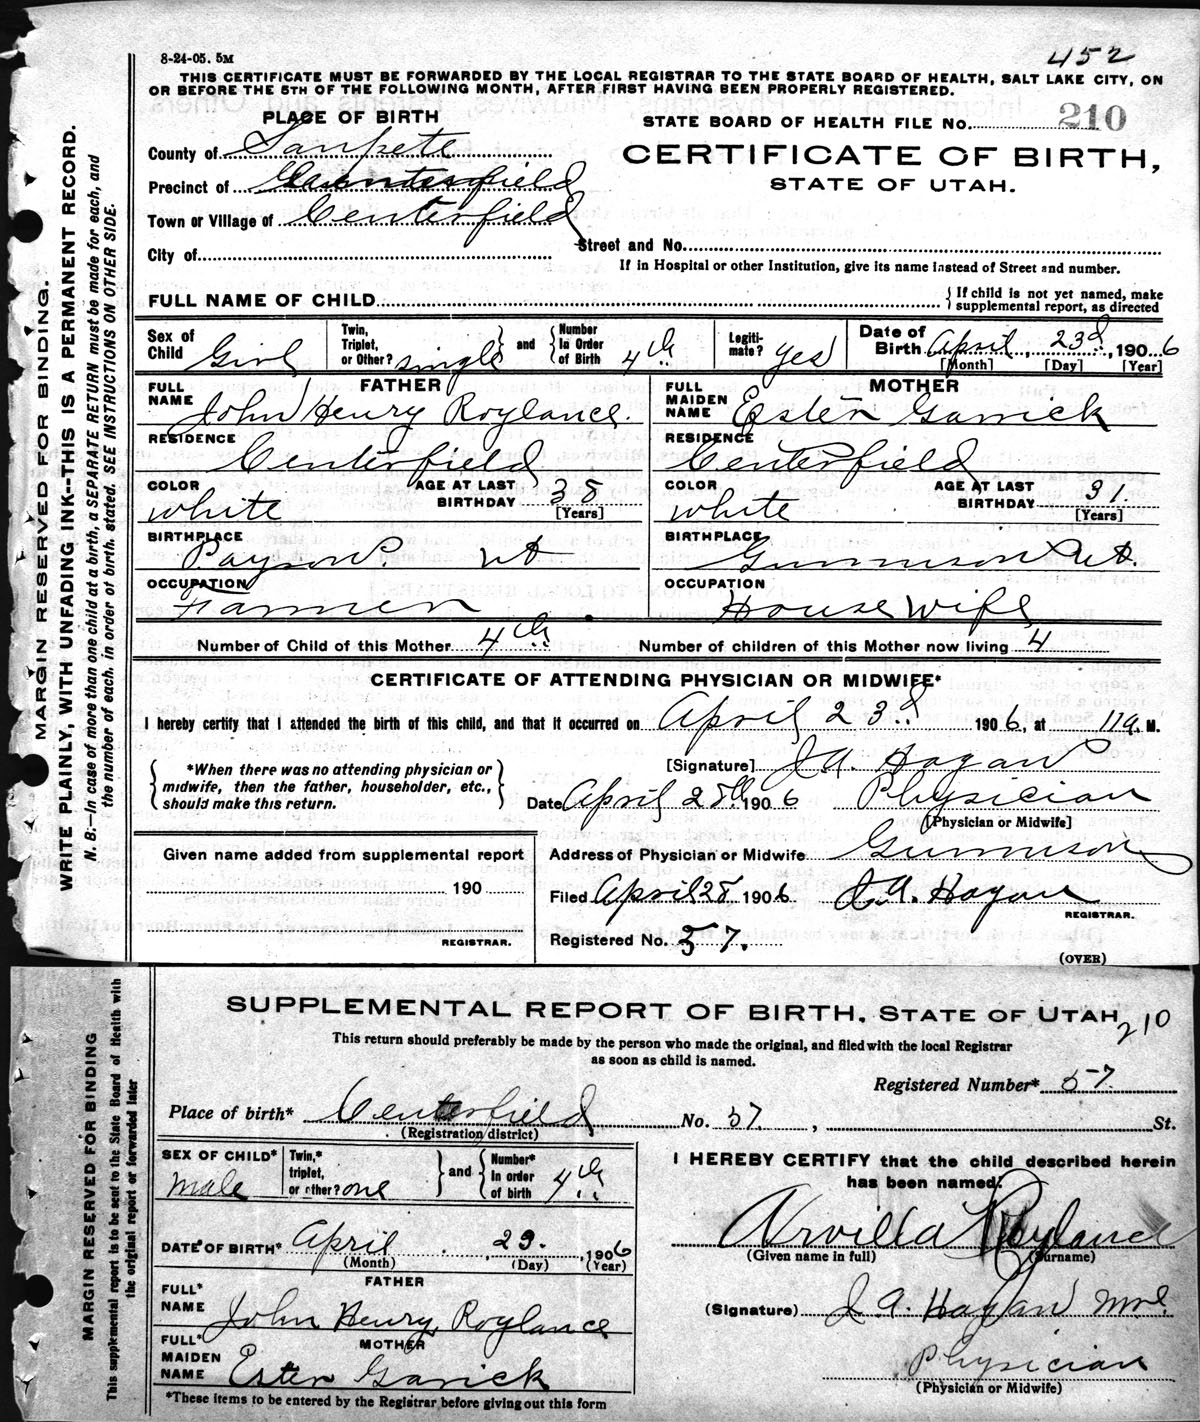 8-24-05. 5M
452
THIS CERTIFICATE MUST BE FORWARDED BY THE LOCAL REGISTRAR TO THE STATE BOARD OF HEALTH, SALT LAKE CITY, ON
OR BEFORE THE 5TH OF THE FOLLOWING MONTH, AFTER FIRST HAVING BEEN PROPERLY REGISTERED.
PLACE OF BIRTH
STATE BOARD OF HEALTH FILE No. 210
County of Sanpete
CERTIFICATE OF BIRTH,
STATE OF UTAH.
Precinct of Centerfield
Town or Village of Centerfield
Street and No.
City of
If in Hospital or other Institution, give its name instead of Street and number.
FULL NAME OF CHILD
{If child is not yet named, make
supplemental report, as directed
Sex of Child Girl
Twin, Triplet, or Other? single
and
Number In Order of Birth 4th
Legiti-mate? yes
Date of Birth April, 23d, 1906
[Month] [Day] [Year]
FATHER
FULL NAME John Henry Roylance.
MOTHER
FULL MAIDEN NAME Ester Garrick
RESIDENCE Centerfield
RESIDENCE Centerfield
COLOR white
AGE AT LAST BIRTHDAY 38 [Years]
COLOR white
AGE AT LAST BIRTHDAY 31. [Years]
BIRTHPLACE Payson. Ut
BIRTHPLACE Gunnison Ut.
OCCUPATION Farmer
OCCUPATION House Wife
Number of Child of this Mother 4th
Number of children of this Mother now living 4
CERTIFICATE OF ATTENDING PHYSICIAN OR MIDWIFE*
I hereby certify that I attended the birth of this child, and that it occurred on April 23d 1906, at 11 a. M.
{*When there was no attending physician or
midwife, then the father, householder, etc.,
should make this return.}
[Signature] J. A. Hagan
Date April 28th 1906 Physician
[Physician or Midwife]
Given name added from supplemental report
190
REGISTRAR.
Address of Physician or Midwife Gunnison
Filed April 28 1906 J. A. Hagan
REGISTRAR.
Registered No. 57.
(OVER)
MARGIN RESERVED FOR BINDING.
WRITE PLAINLY, WITH UNFADING INK--THIS IS A PERMANENT RECORD.
N. B.—In case of more than one child at a birth, a SEPARATE RETURN must be made for each, and
the number of each, in order of birth, stated. SEE INSTRUCTIONS ON OTHER SIDE.
SUPPLEMENTAL REPORT OF BIRTH, STATE OF UTAH
210
This return should preferably be made by the person who made the original, and filed with the local Registrar
as soon as child is named.
Registered Number* 57
Place of birth* Centerfield No. 57. , St.
(Registration district)
SEX OF CHILD* Male
Twin,* triplet, or other? one
and
Number* In order of birth 4th
I HEREBY CERTIFY that the child described herein
has been named:
Arvilla Roylance
(Given name in full) (Surname)
DATE OF BIRTH* April, 23. 1906
(Month) (Day) (Year)
FATHER
FULL* NAME John Henry Roylance
(Signature) J A. Hagan
MOTHER
FULL* MAIDEN NAME Ester Garick
Physician
(Physician or Midwife)
*These items to be entered by the Registrar before giving out this form
MARGIN RESERVED FOR BINDING
This supplemental report is to be sent to the State Board of Health with
the original report or forwarded later